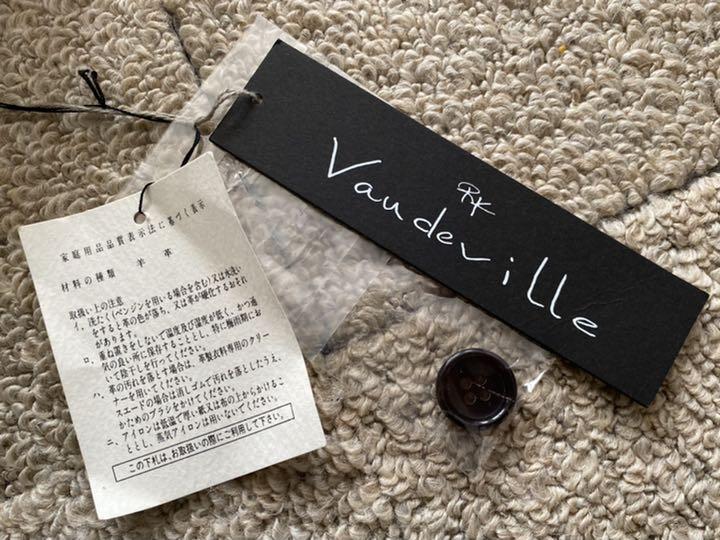 家庭用品品質表示法に基づく表示
材料の種類 羊革
取扱い上の注意
イ、洗たく(ベンジンを用いる場合を含む)又は水洗い
をすると革の色が落ち、又は革が硬化するおそれ
があります。
ロ、重ね置きをしないで温度及び湿度が低く、かつ通
気の良い所に保存することとし、特に梅雨期にお
いて陰干しを行ってください。
ハ、革の汚れを落とす場合は、革製衣料専用のクリー
ナーを用いてください。
スエードの場合は消しゴムで汚れを落としたうえ、
かためのブラシをかけてください。
ニ、アイロンは低温で厚い紙又は布の上からかけるこ
ととし、蒸気アイロンは用いないでください。
この下札は、お取扱いの際にご利用して下さい。
Vaudeville